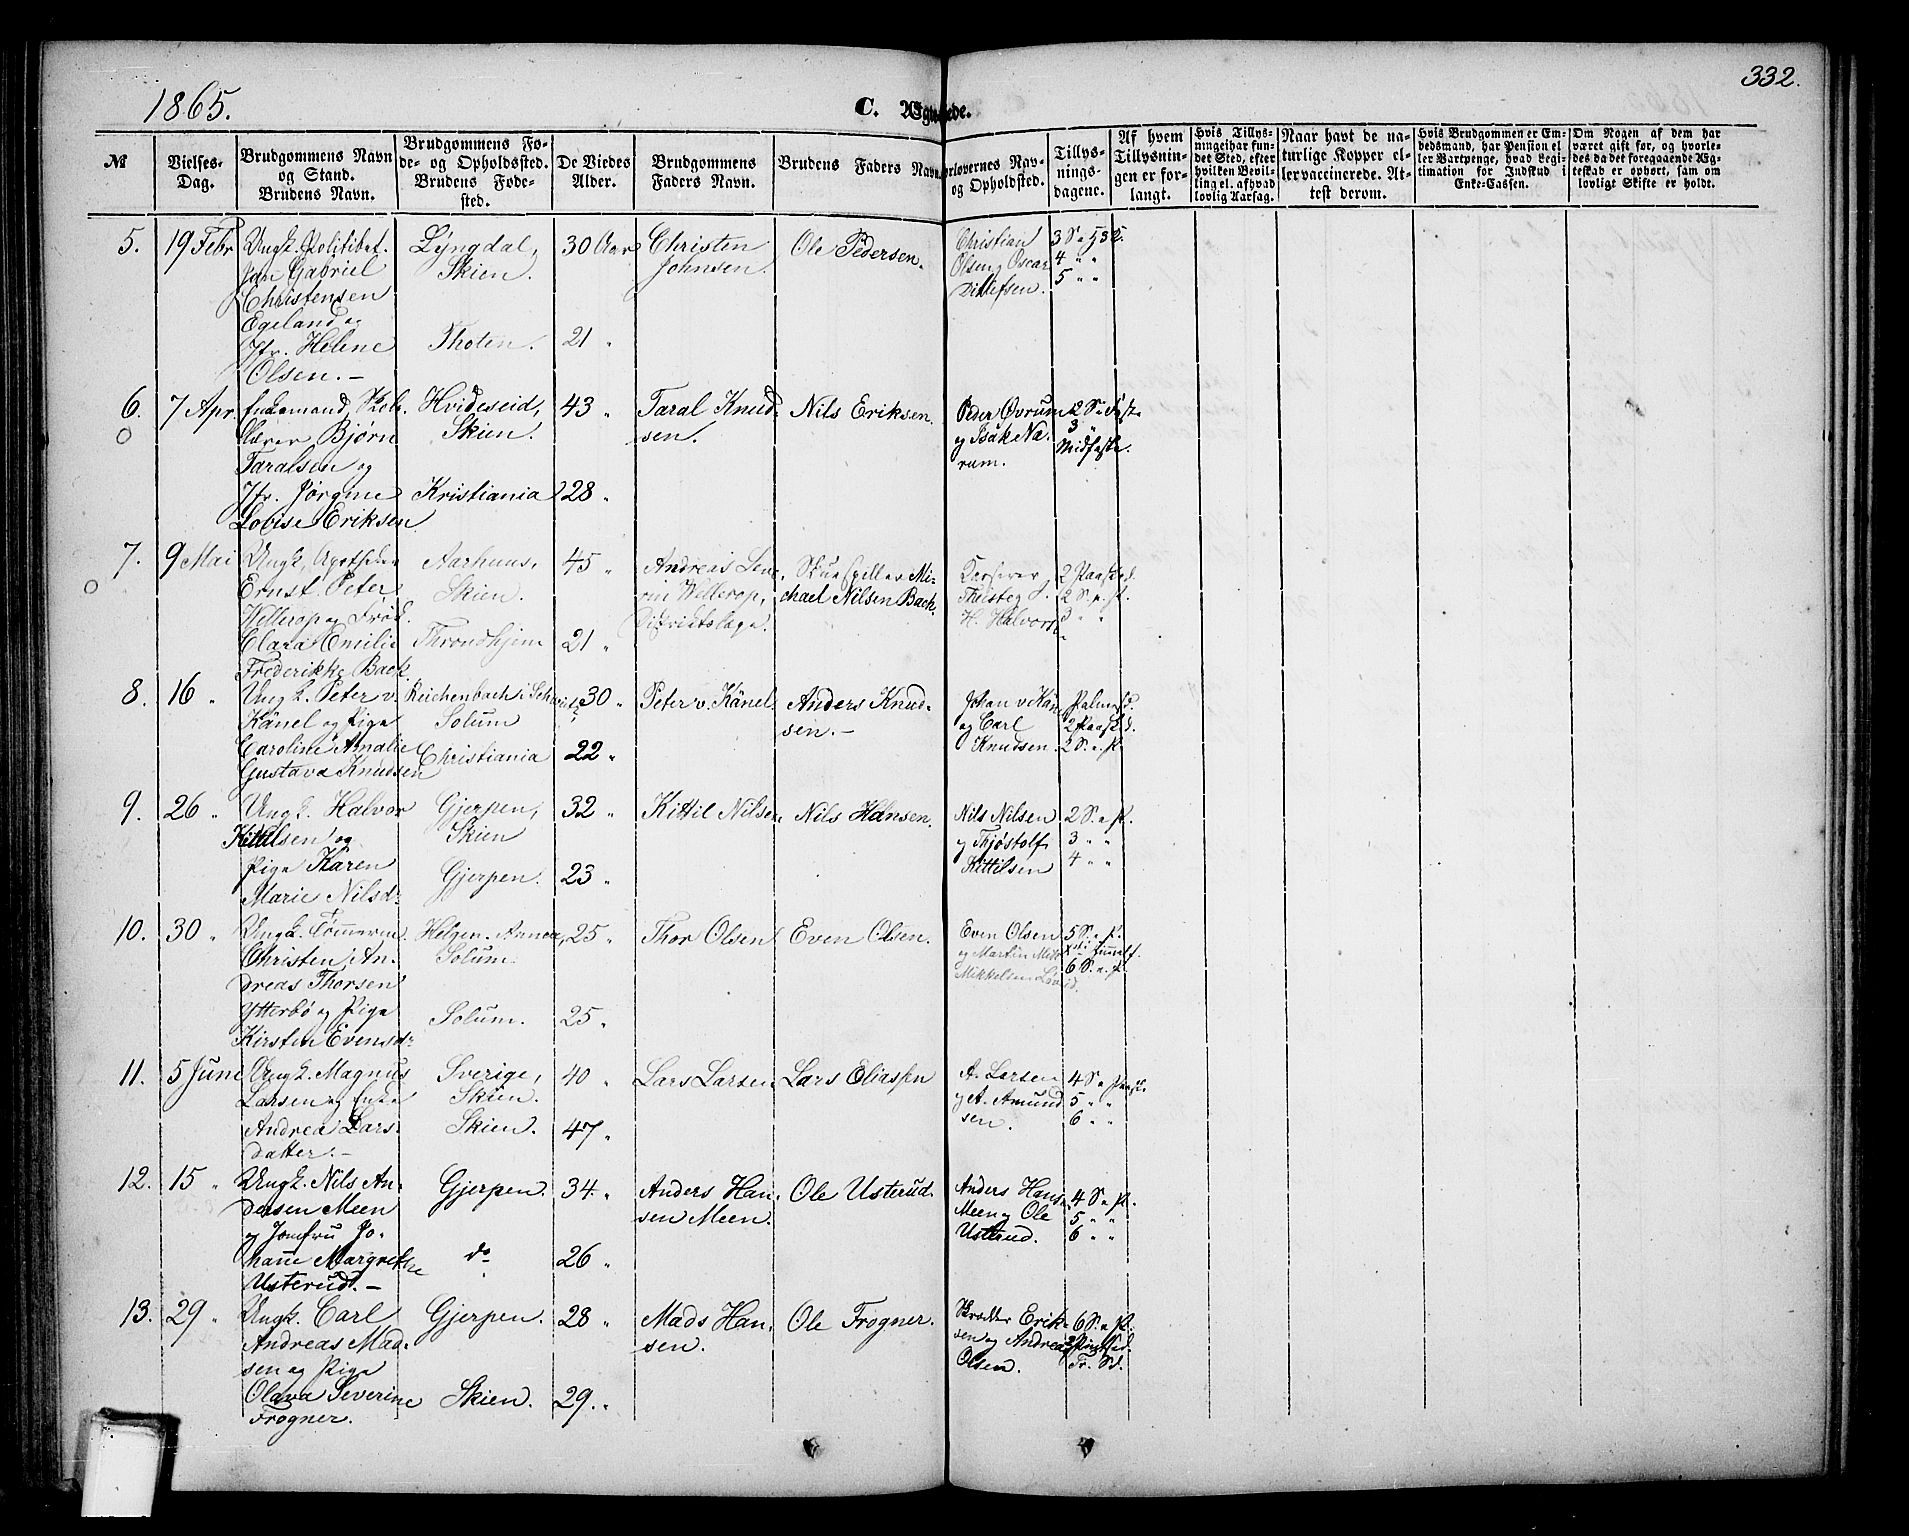 332.
1865.
C. Ægtviede.
№
Vielses-Dag.
Brudgommens Navn og Stand. Brudens Navn.
Brudgommens Føde- og Opholdssted. Brudens Fødested.
De Viedes Alder.
Brudgommens Faders Navn.
Brudens Faders Navn.
orlovernes Navn og Opholdsted.
Tillysningsdagene.
Af hvem Tillysningen er forlangt.
Hvis Tillysningei har fundet Sted, efter hvilken Bevilling el. afhvad lovlig Aarsag.
Naar havt de naturlige Kopper eller vaccinerede. Attest derom.
Hvis Brudgommen er Embedsmand, har Pension el ler Vartpenge, hvad Legitimation for Indskud i Enke-Cassen.
Om Nogen af dem har været gift før, og hvorledes da det foregaaende Ægteskab er ophørt, sam om lovligt Skifte er holdt.
5. 19 Febr Ungk. Politibet. Lyngdal, 30 Aar Christen Ole Pedersen. Christian 3 S.
Jan Gabriel Skien. Johnsen. Olsen og Oscar 4 " "
Christensen Ditlefsen. 5 " "
Egeland og
Jfr. Helene Thoten. 21 "
Olsen. —
6. 7 Apr. Enkemand, Skole- Hvideseid, 43 " Taral Knud- Nils Eriksen. Peder Øvrum 2 S. i Faste
lærer Bjørn Skien. sen. og Isak Na- 3 "
Taralsen og rum. Midfaste.
Jfr. Jørgine Kristiania 28 "
Lovise Eriksen
7. 9 Mai Ungk. Apotheker Aarhuus, 45 " Andreas Skuespiller Mi- 2 Paaskd.
Ernst Peter Skien. Wellerop, chael Nilsen Back. Thisteg 2 S. e. P.
Wellerop og Frød. Districtslæge. H. Halvors 3 " "
Clara Emilie Throndhjem 21 "
Frederikke Back.
8. 16 " Ungk. Peter v. Reichenbach i Schweitz, 30 " Peter v. Känel. Anders Knud- Johan v Känel Palmesd.
Känel og Pige Solum sen. — og Carl 2 Paaskd.
Caroline Amalie Christiania 22 " Knudsen. 2 S. e. P.
Gustava Knudsen
9. 26 " Ungk. Halvor Gjerpen, 32 " Kittil Nilsen. Nils Hansen. Nils Nilsen 2 S. e. P.
Kittilsen og Skien og Thjøstolf 3 " "
Pige Karen Gjerpen. 23 " Kittilsen 4 " "
Marie Nilsd.
10. 30 " Ungk. Tømmerm. Helgen Annex, 25 " Thor Olsen Even Olsen. Even Olsen 5 S. e. P.
Christen An- Solum. og Martin
dreas Thorsen Mikkelsen 6 S. e. P.
Ytterbø og Pige Solum. 25 "
Kirsten Evensd.
11. 5 June Ungk. Magnus Sverige, 40 " Lars Larsen. Lars Eliassen A. Larsen 4 S. e. Paask.
Larsen og Enke Skien. og A. Amund 5 " "
Andrea Lars- Skien. 47 " sen. 6 " "
datter. —
12. 15 " Ungk. Nils An- Gjerpen. 34 " Anders Han- Ole Usterud. Anders Hans. 4 S. e. P.
dersen Meen sen Meen. Meen og Ole 5 " "
og Jomfru Jo- Usterud. 6 " "
hanne Margrethe do 26 "
Usterud. —
13. 29 " Ungk. Carl Gjerpen. 28 " Mads Han- Ole Frogner. Skrædder Erik- 6 S. e. P.
Andreas Mad- sen. sen og Andreas 2 Pintsed.
sen og Pige Olsen. Tr. Sd.
Olava Severine Skien. 29 "
Frogner.